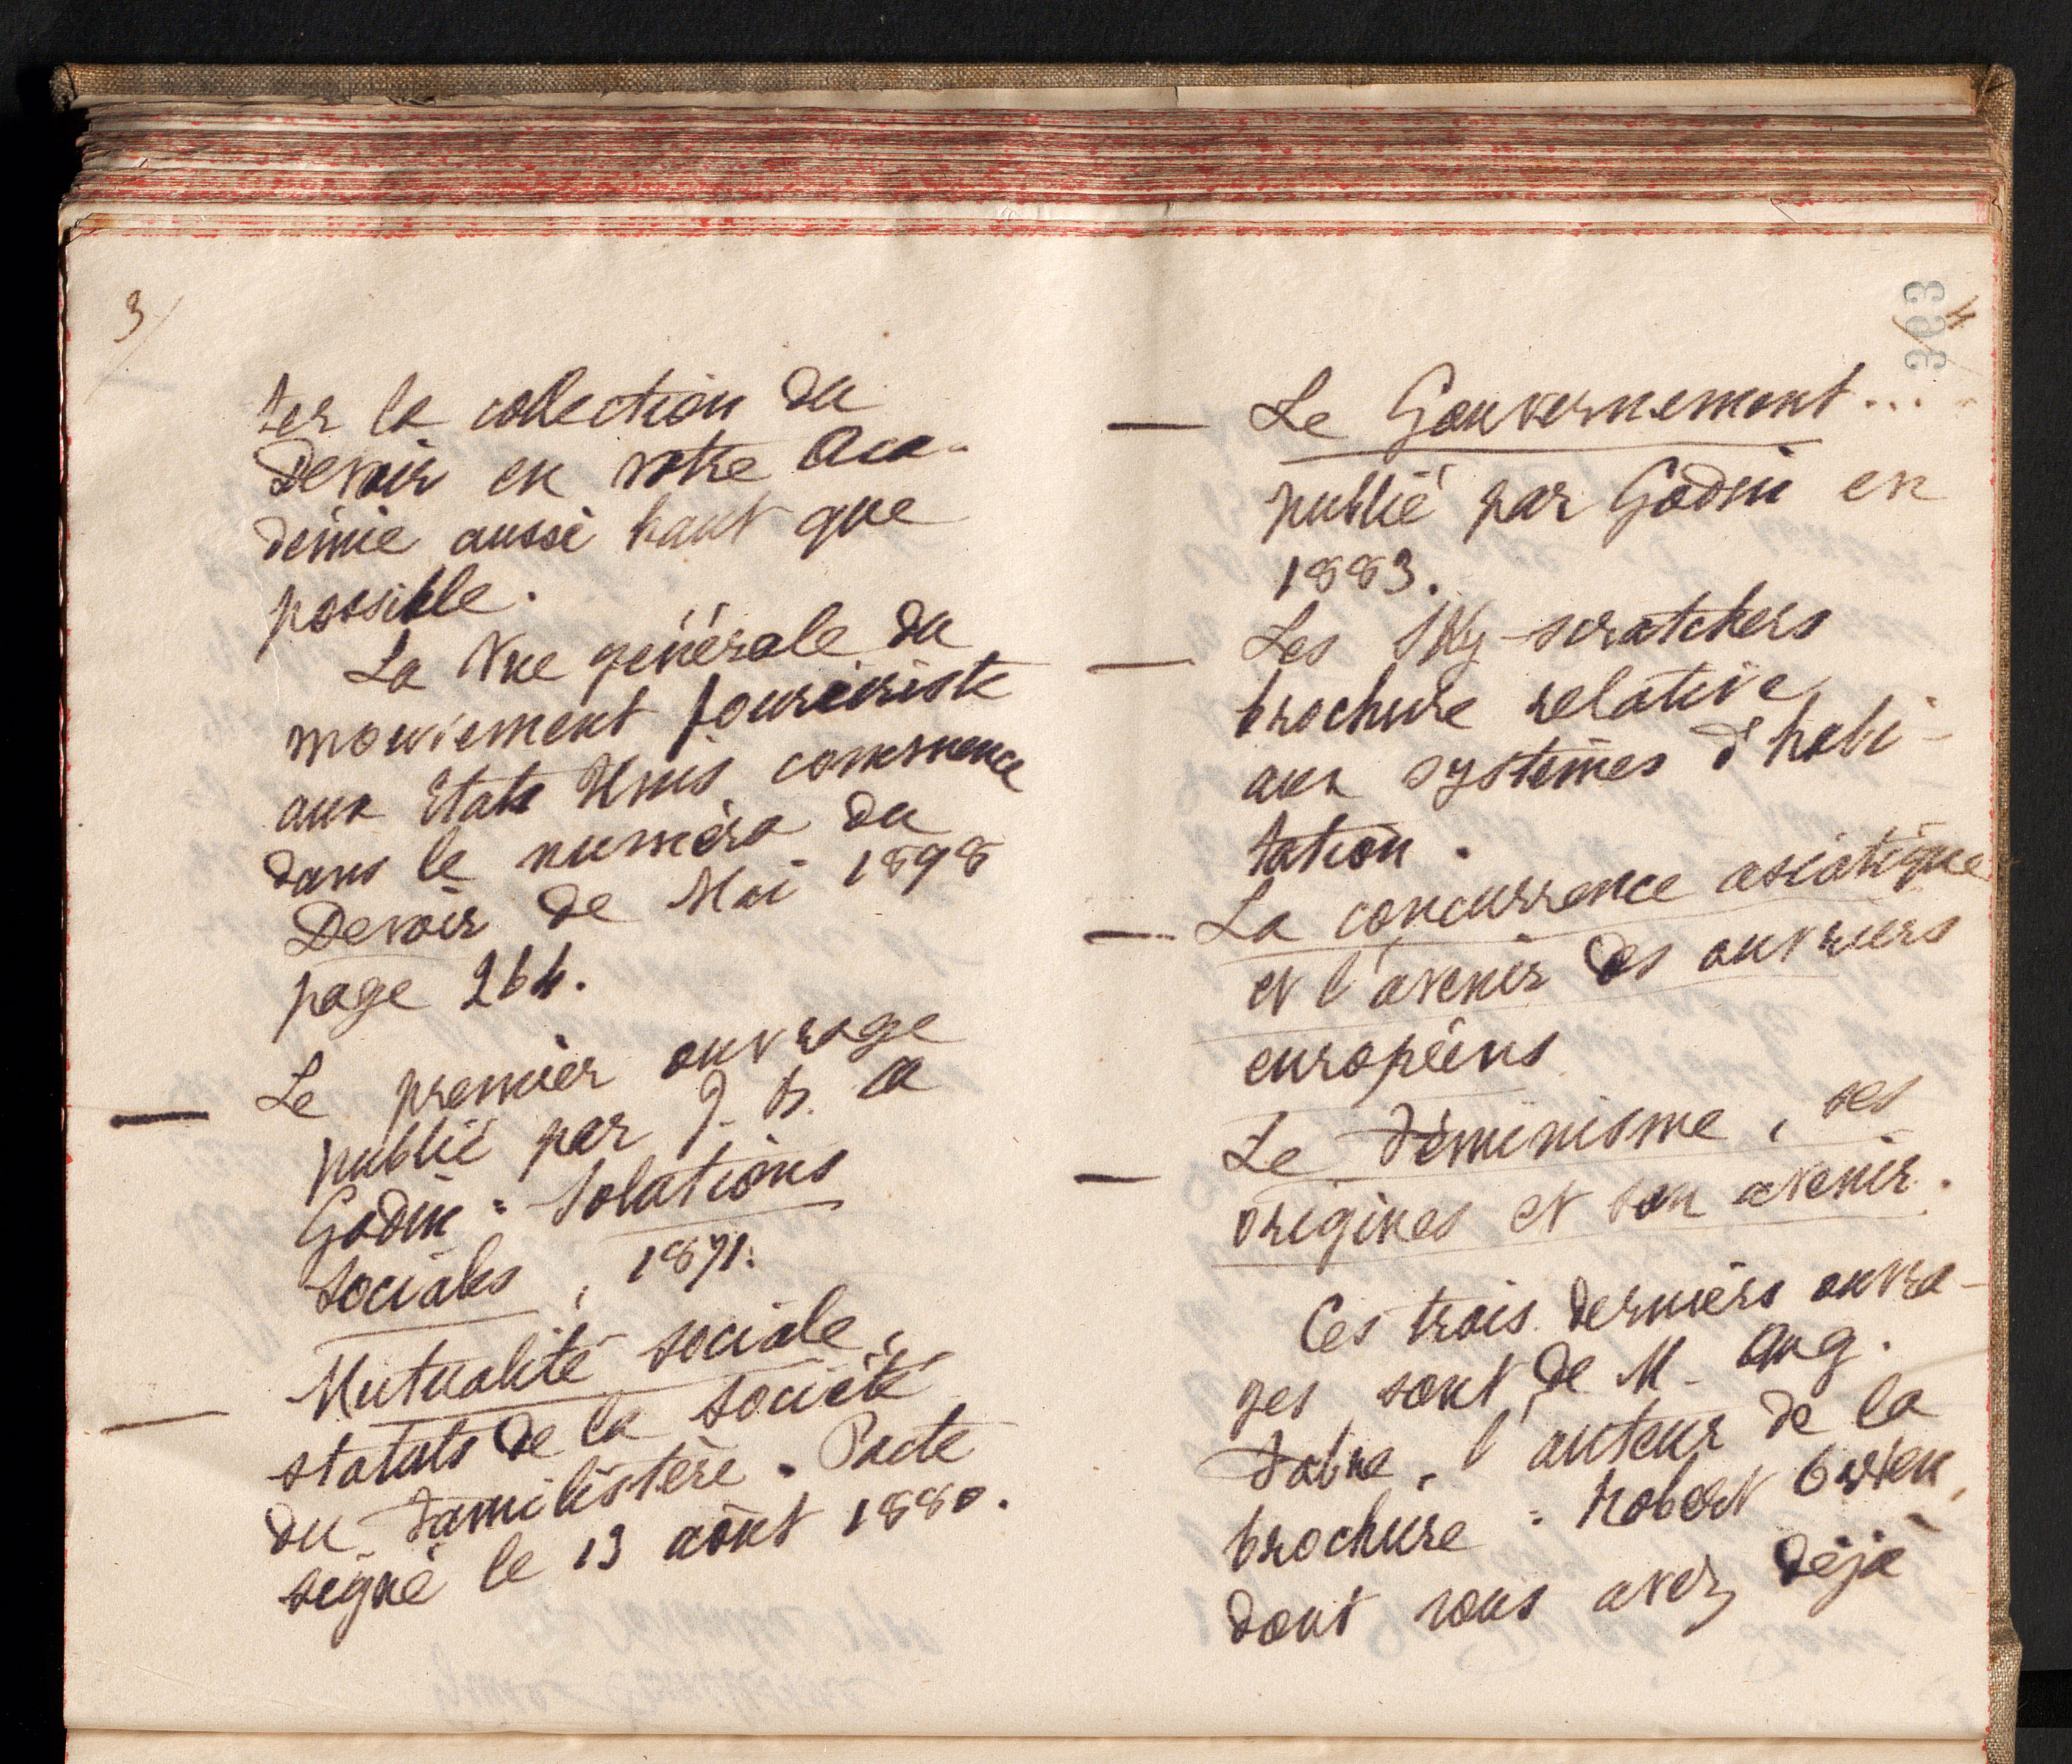 3/
ter la collection du
Devoir en votre Aca-
démie aussi haut que
possible.
La Vue générale du
mouvement fouriériste
aux Etats Unis commence
dans le numéro du
Devoir de Mai 1898
page 264.
— Le premier ouvrage
publié par J. B. A
Godin : Solutions
Sociales, 1871.
— Mutualité sociale,
statuts de la Société
du Familistère. Pacte
signé le 13 août 1880.
4/
363
— Le Gouvernement...
publié par Godin en
1883.
— Les Sky-scratchers
brochure relative
aux systèmes d'habi-
tation.
— La concurrence asiatique
et l'avenir des ouvriers
européens
— Le Féminisme, ses
origines et son avenir.
Ces trois derniers ouvra-
ges sont de M. Aug.
Fabre, l'auteur de la
brochure : Robert Owen,
dont vous avez déjà